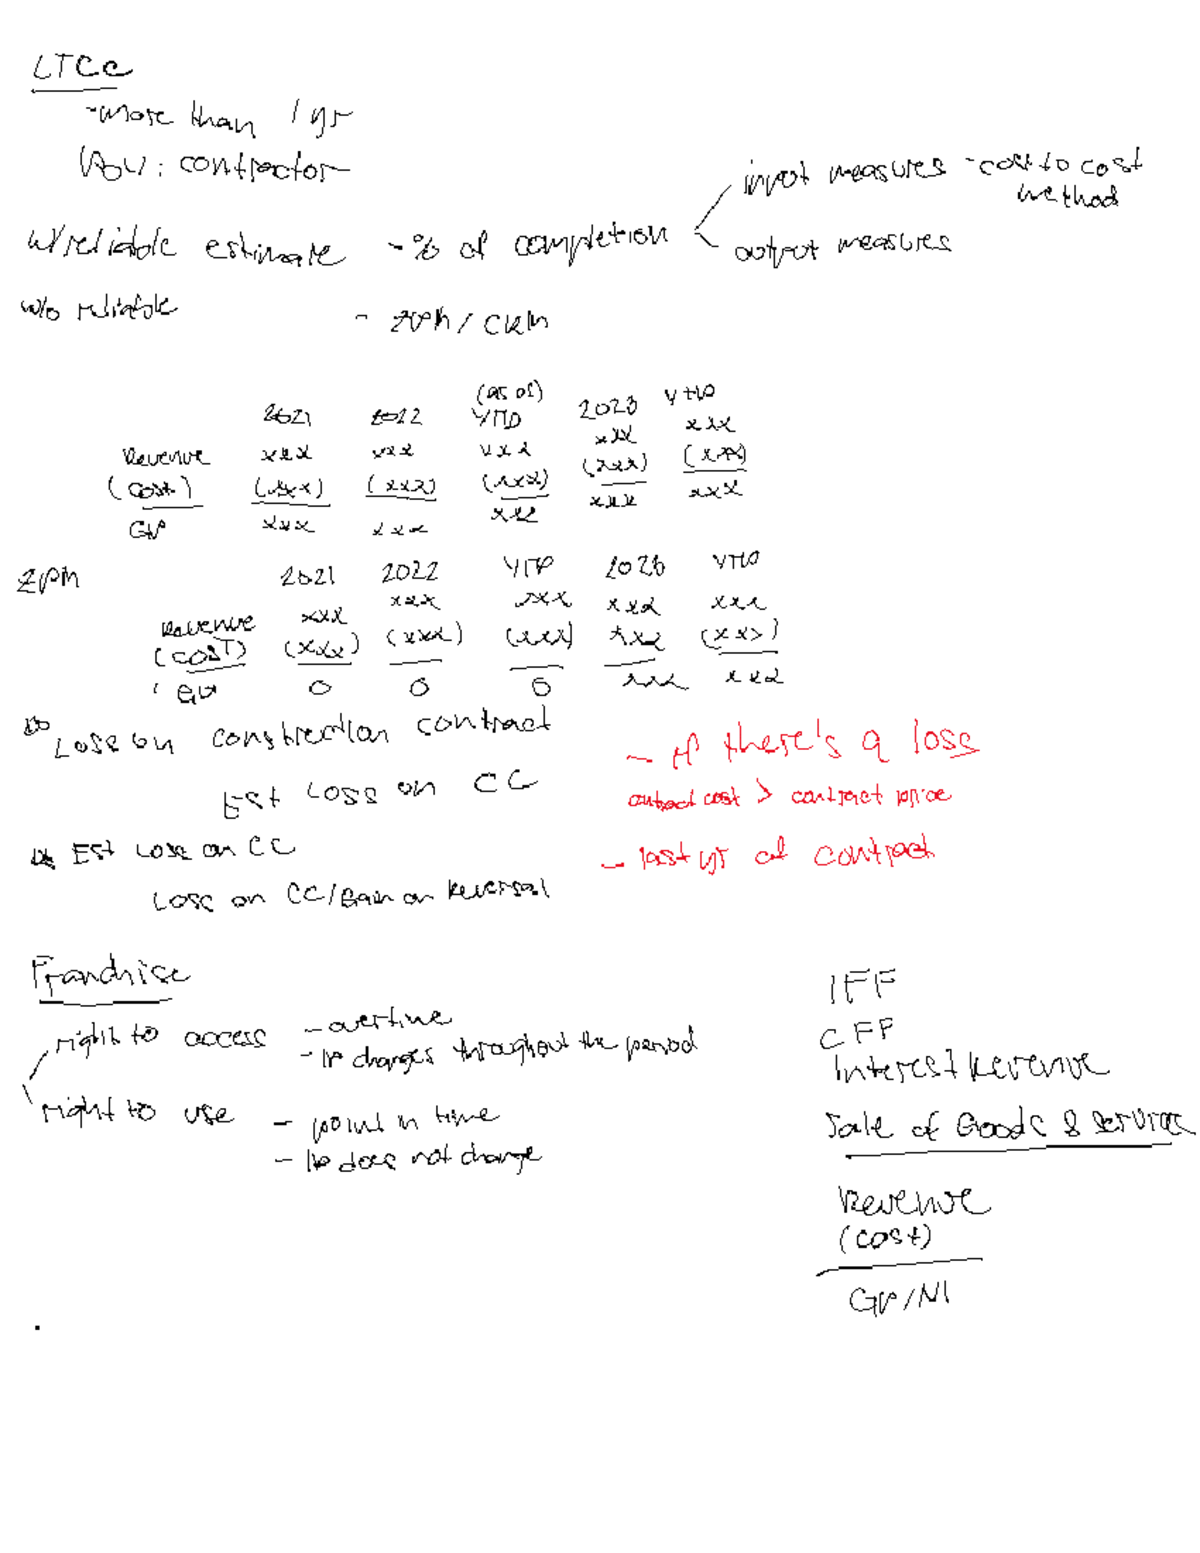 LTCC
- more than 1 yr
POV : contractor
input measures - cost to cost
method
w/ reliable estimate - % of completion
output measures
w/o reliable - ZPM / CRM
(as of)
2021 2022 YTD 2023 YTD
Revenue xxx xxx xxx xxx xxx
(cost) (xxx) (xxx) (xxx) (xxx) (xxx)
GP xxx xxx xxx xxx xxx
ZPM 2021 2022 YTD 2023 YTD
Revenue xxx xxx xxx xxx xxx
(COST) (xxx) (xxx) (xxx) xxx (xxx)
GP 0 0 0 xxx xxx
Loss on construction contract - if there's a loss
Est Loss on CC
contract cost > contract price
Est Loss on CC - last yr of contract
Loss on CC / Gain on Reversal
Franchise
IFF
right to access - overtime
CFF
- IP changes throughout the period
Interest Revenue
right to use - point in time
Sale of Goods & services
- IP does not change
Revenue
(cost)
GP / NI